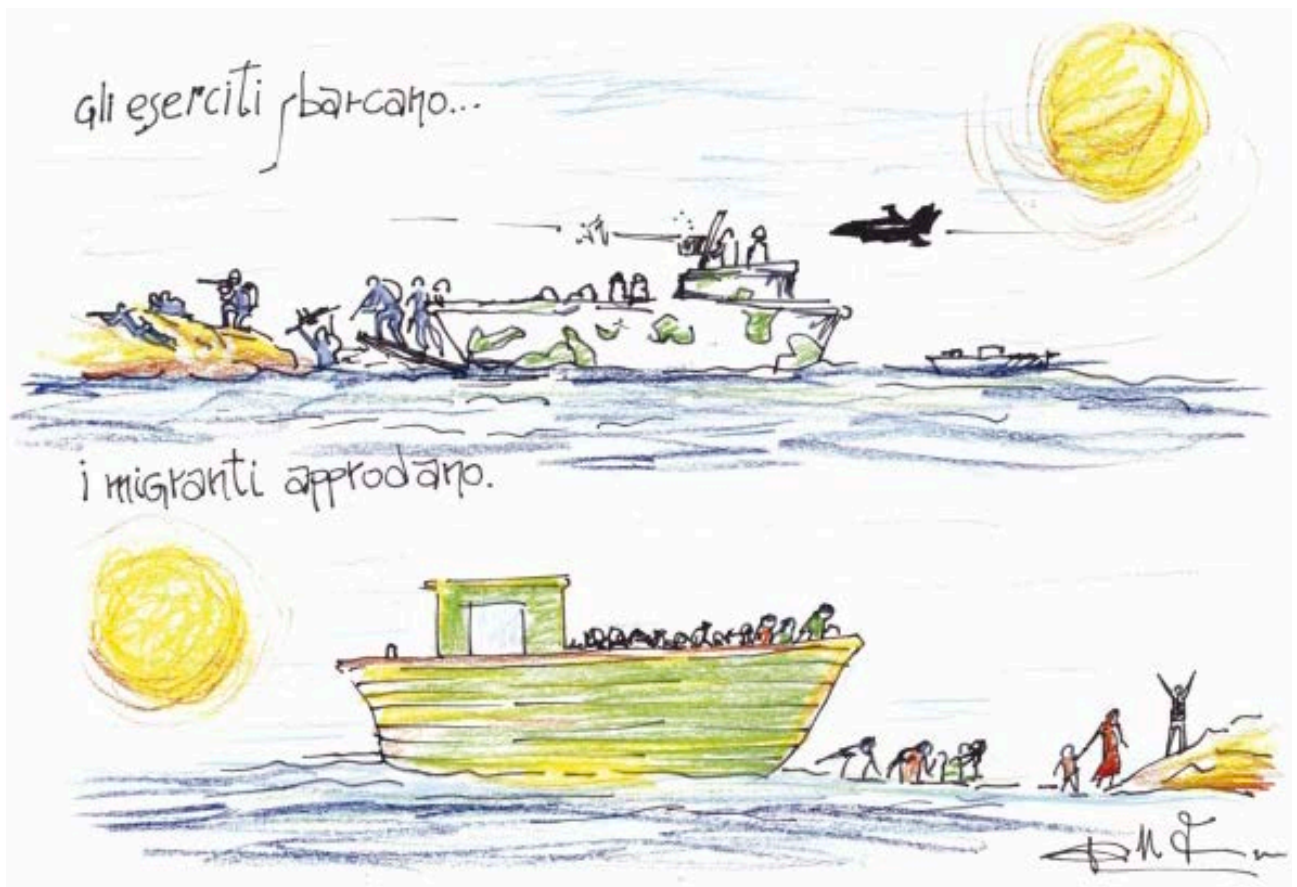 gli eserciti sbarcano...
i migranti approdano.